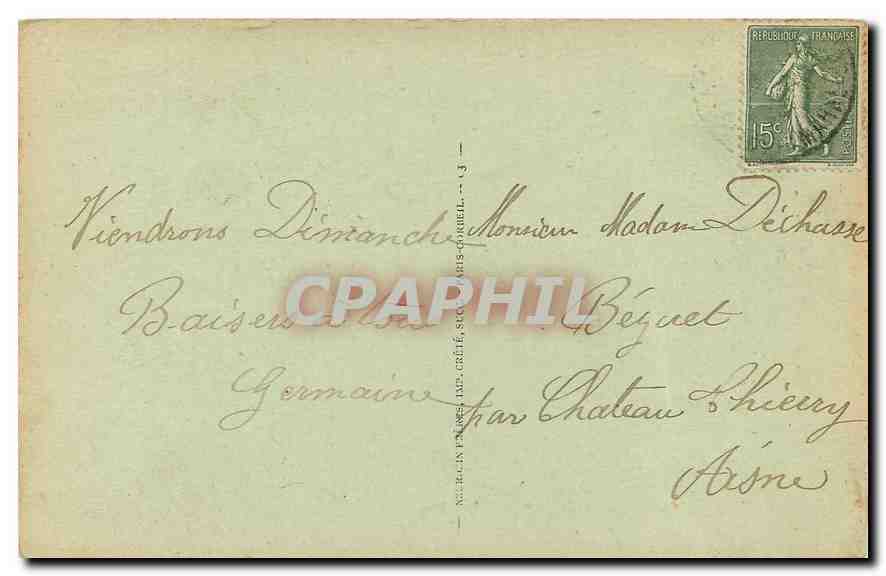 REPUBLIQUE FRANÇAISE
15c
Viendrons Dimanche
Baisers a tous
Germaine
Monsieur Madame Déchasse
Béguet
par Chateau Thierry
Aisne
IMP. CRÉTÉ, SUCC. PARIS-CORBEIL.
CPAPHIL